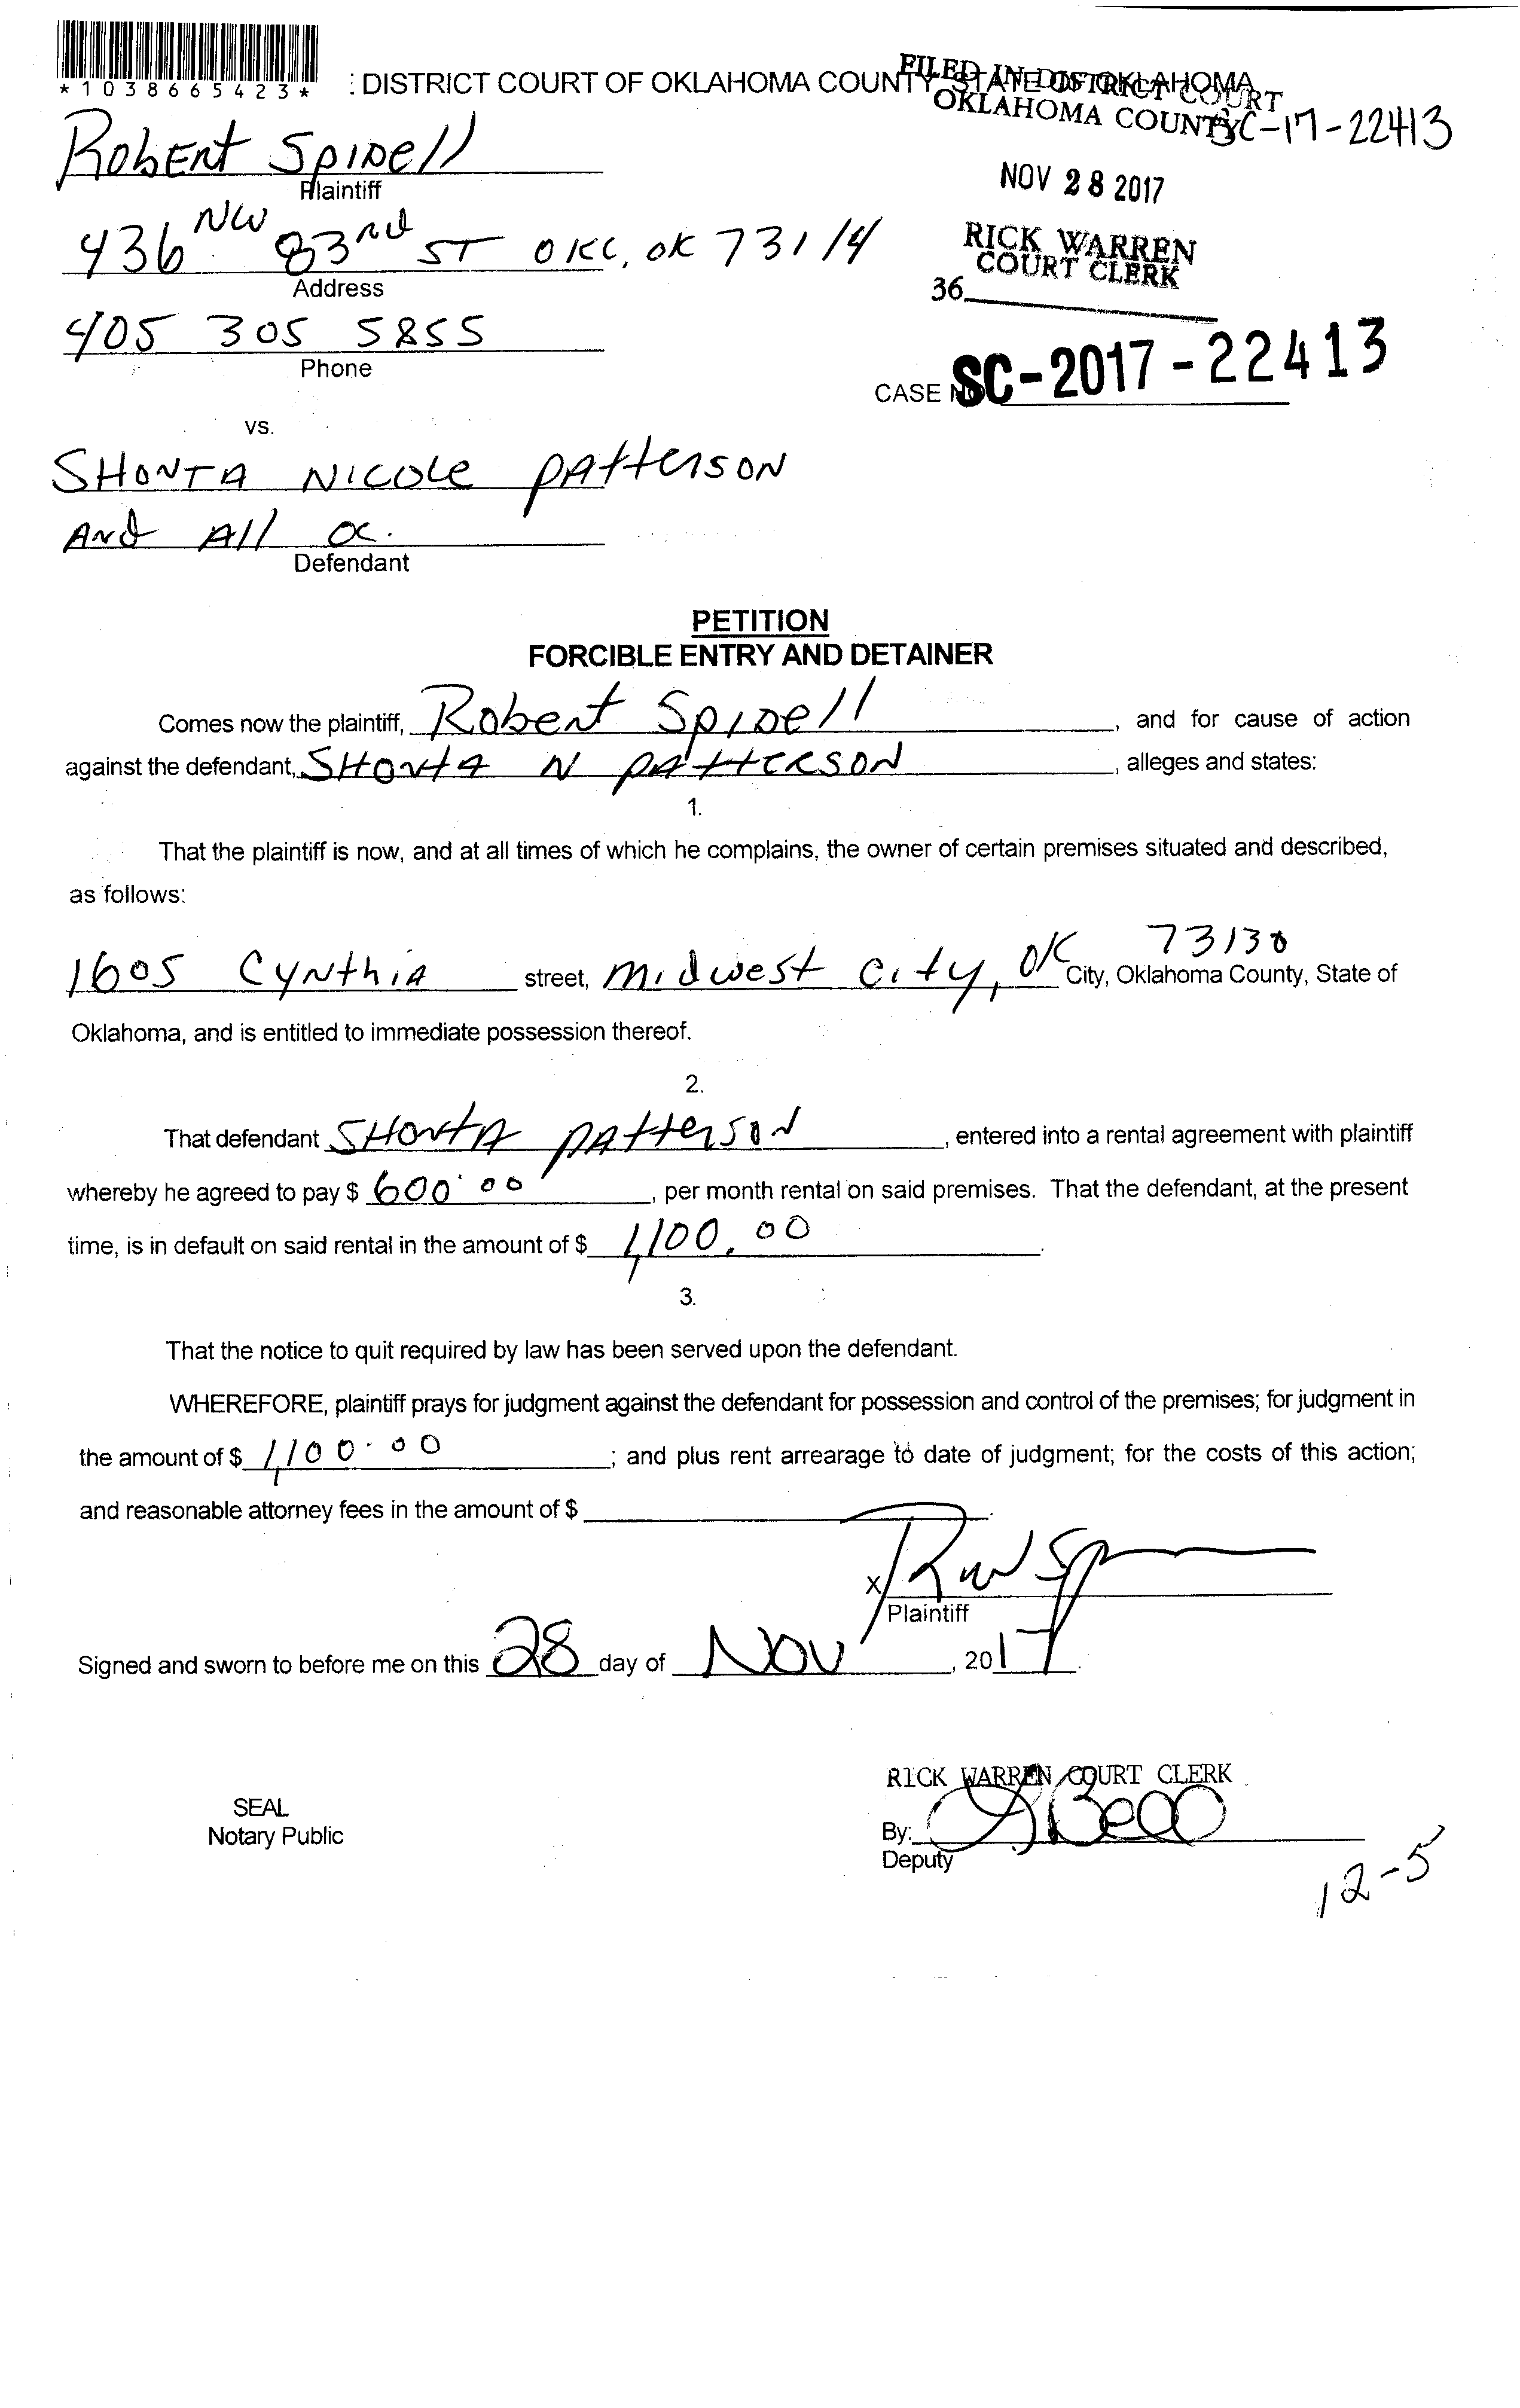 *1038665423*
: DISTRICT COURT OF OKLAHOMA COUNTY STATE OF OKLAHOMA
FILED IN DISTRICT COURT
OKLAHOMA COUNTY
SC-17-22413
Robert Spidell
Plaintiff
NOV 28 2017
436 NW 83rd ST OKC, OK 73114
Address
RICK WARREN
COURT CLERK
36
405 305 5855
Phone
CASE NO. SC-2017-22413
vs.
SHONTA NICOLE PAtterson
And All
Defendant
PETITION
FORCIBLE ENTRY AND DETAINER
Comes now the plaintiff, Robert Spidell, and for cause of action
against the defendant, SHONtA N PATTERSON, alleges and states:
1.
That the plaintiff is now, and at all times of which he complains, the owner of certain premises situated and described,
as follows:
1605 Cynthia street, Midwest City, OK 73130 City, Oklahoma County, State of
Oklahoma, and is entitled to immediate possession thereof.
2.
That defendant SHONtA PAtterson, entered into a rental agreement with plaintiff
whereby he agreed to pay $ 600.00, per month rental on said premises. That the defendant, at the present
time, is in default on said rental in the amount of $ 1,100.00.
3.
That the notice to quit required by law has been served upon the defendant.
WHEREFORE, plaintiff prays for judgment against the defendant for possession and control of the premises; for judgment in
the amount of $ 1,100.00; and plus rent arrearage to date of judgment; for the costs of this action;
and reasonable attorney fees in the amount of $.
X
Plaintiff
Signed and sworn to before me on this 28 day of Nov, 2017.
RICK WARREN COURT CLERK
SEAL
Notary Public
By:
Deputy
12-5